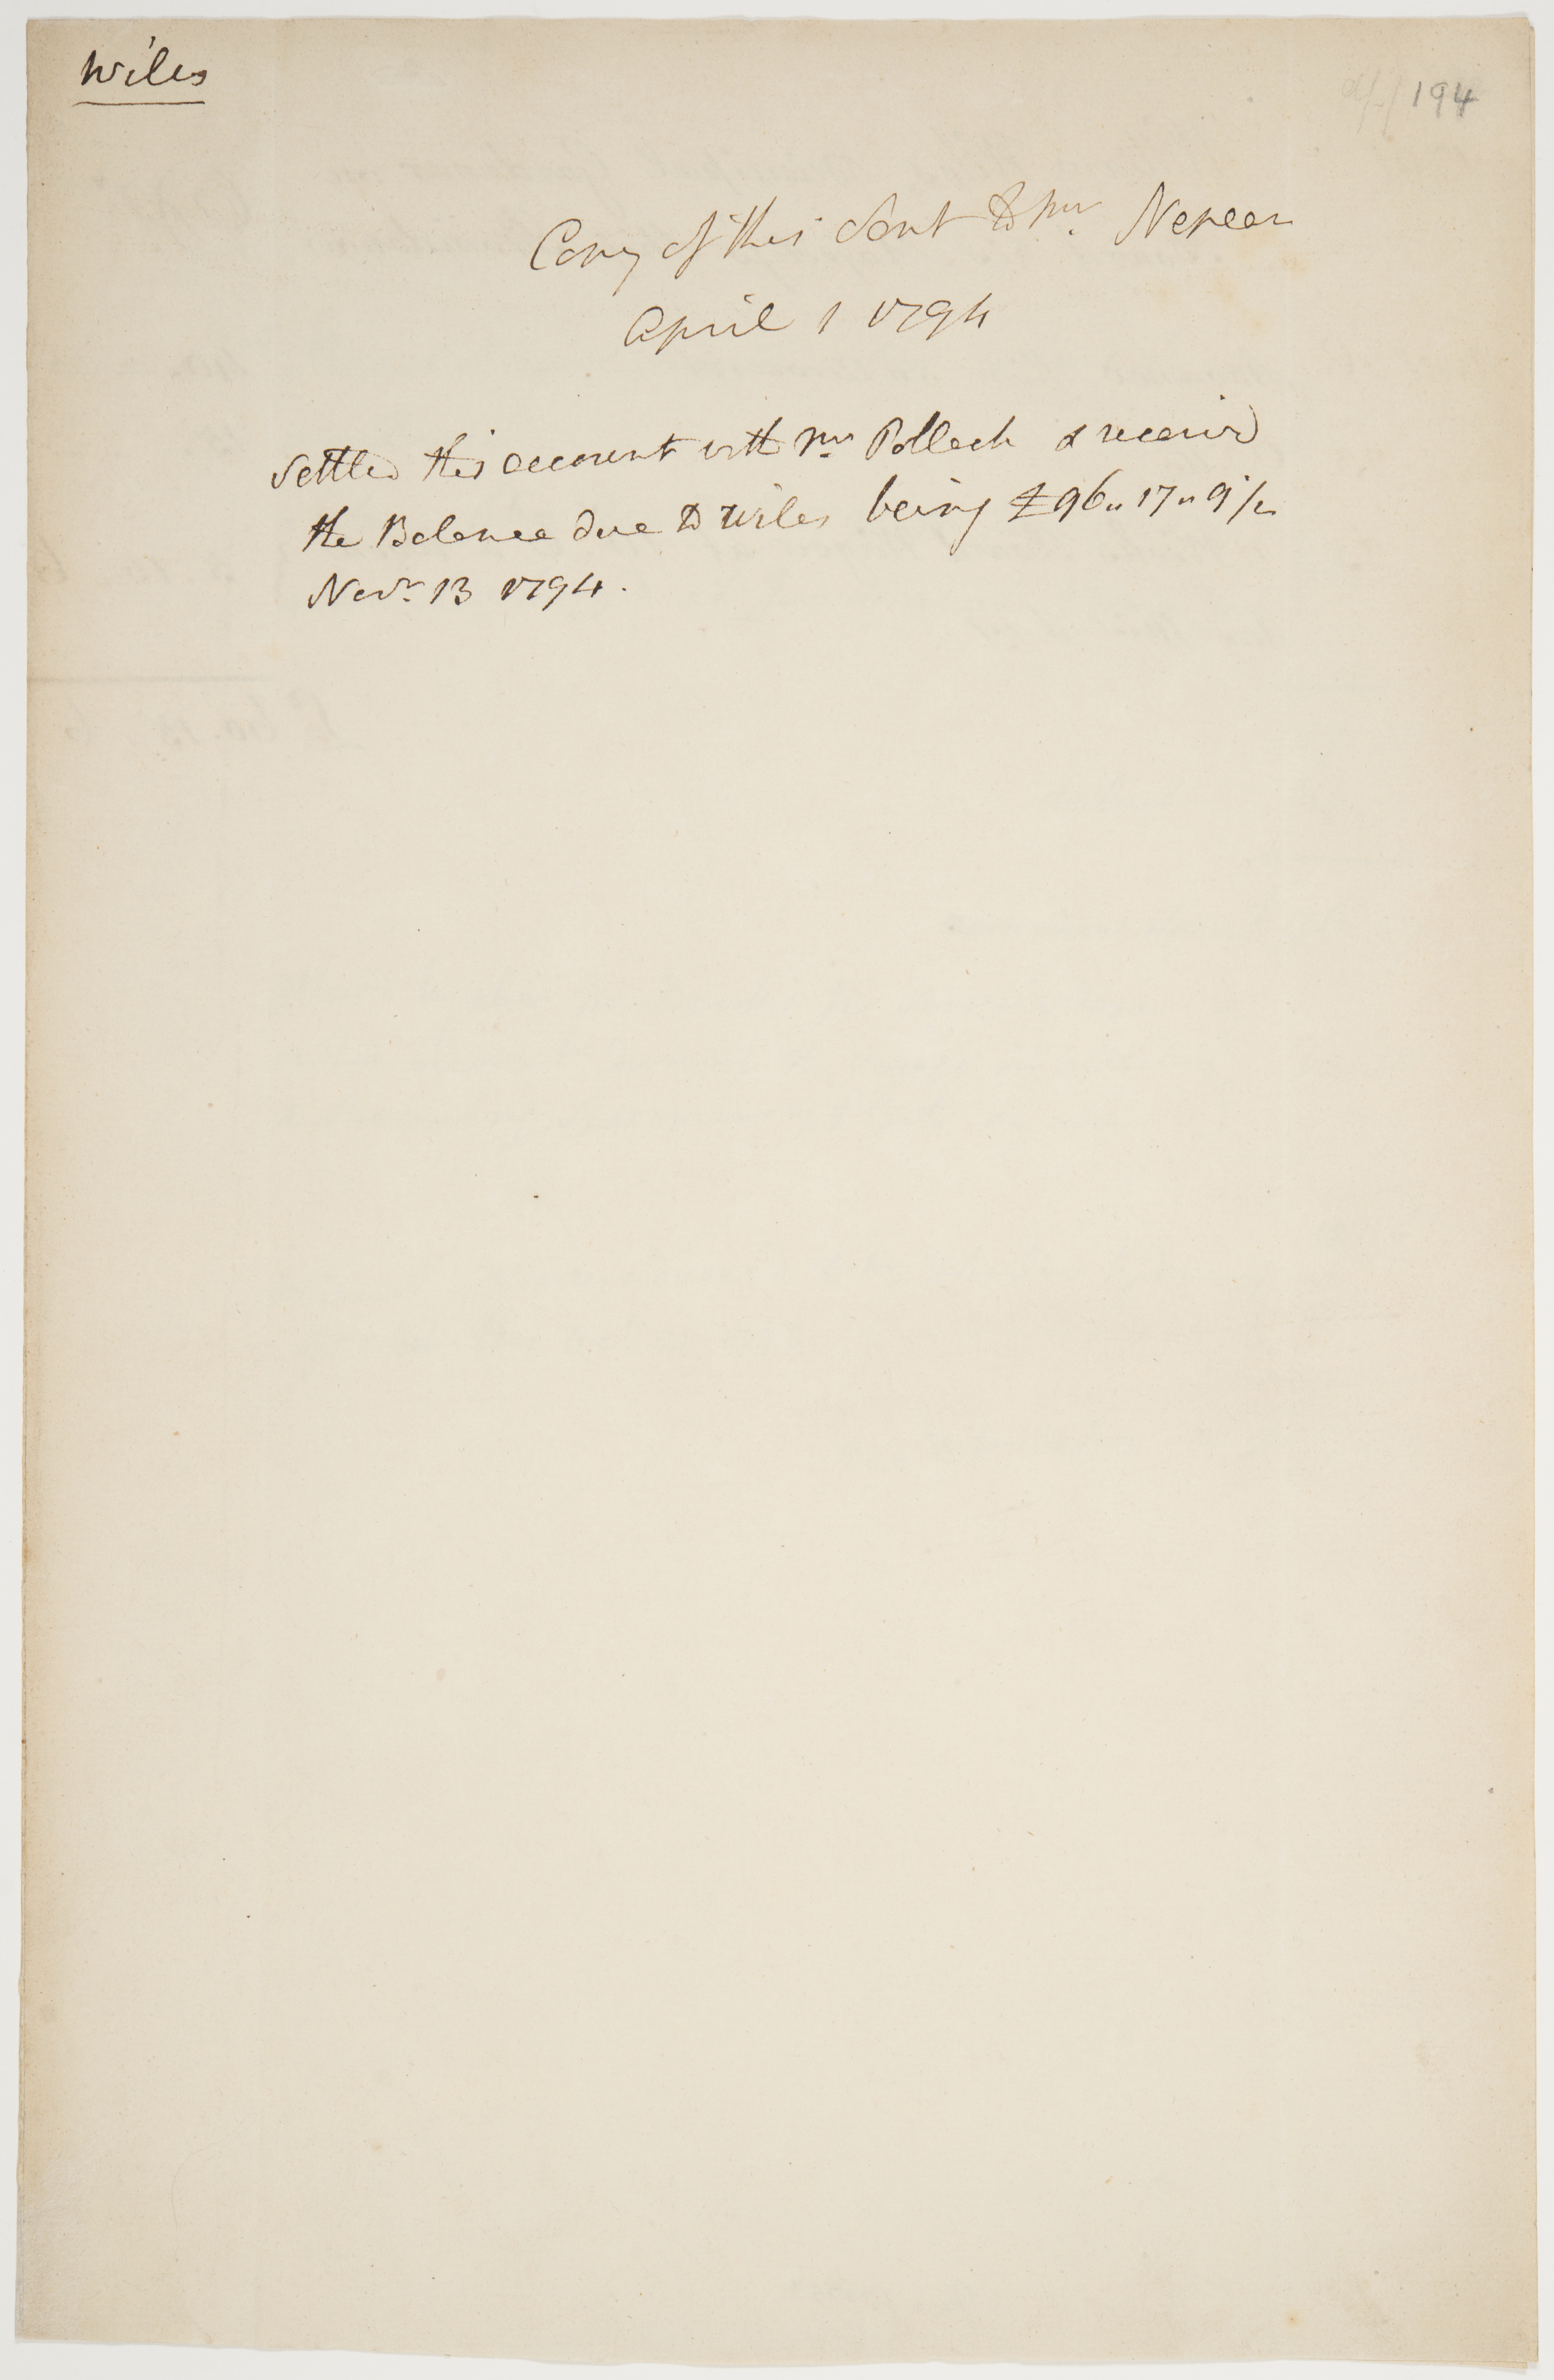 Wiles
194
Copy of this sent to Mr. Nepean
April 1 1794
Settled this account with Mr. Pollock & receivd
the Balance due to Wiles being £96" 17" 9½
Novr. 13 1794.